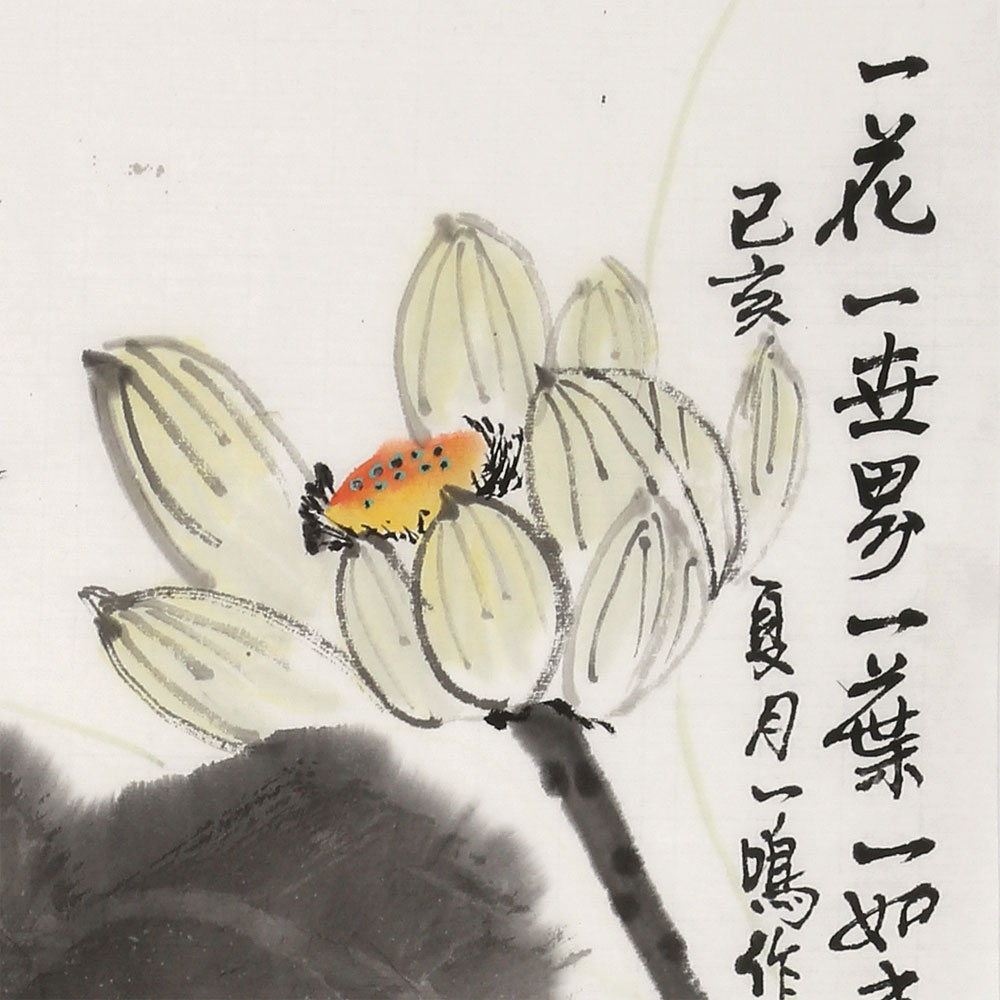 一花一世界一葉一如
己亥
夏月一鳴作